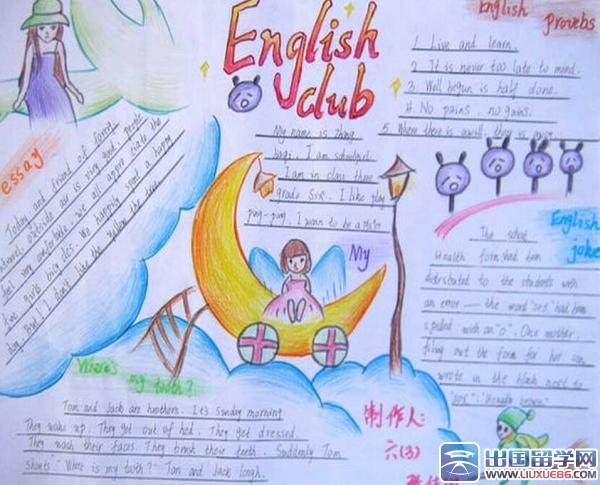 English club
English proverbs
1. Live and learn.
2. It is never too late to mend.
3. Well begun is half done.
4. No pains, no gains.
5. Where there is a will, there is
essay
Today and friend ed forest
outside air is very good, people
feel very comfortable, we all appre ciate the
We happily spent a happy
day. But I don't like the
My name is Zhang
I am schoolgirl.
I am in class three
grade six. I like play
ping-pong. I want to be a
My
English joke
The school
Health form had been
distributed to the students with
an error — the word "sex" had been
spelled with an "o". One mother,
filing out the form for her son,
wrote in the blank next to
Where's my tooth?
Tom and Jack are brothers. It's Sunday morning.
They wake up. They get out of bed. They get dressed.
They wash their faces. They brush their teeth. Suddenly Tom
shouts "Where is my tooth?" Tom and Jack laugh.
制作人:
六(3)
出国留学网
WWW.LIUXUE86.COM